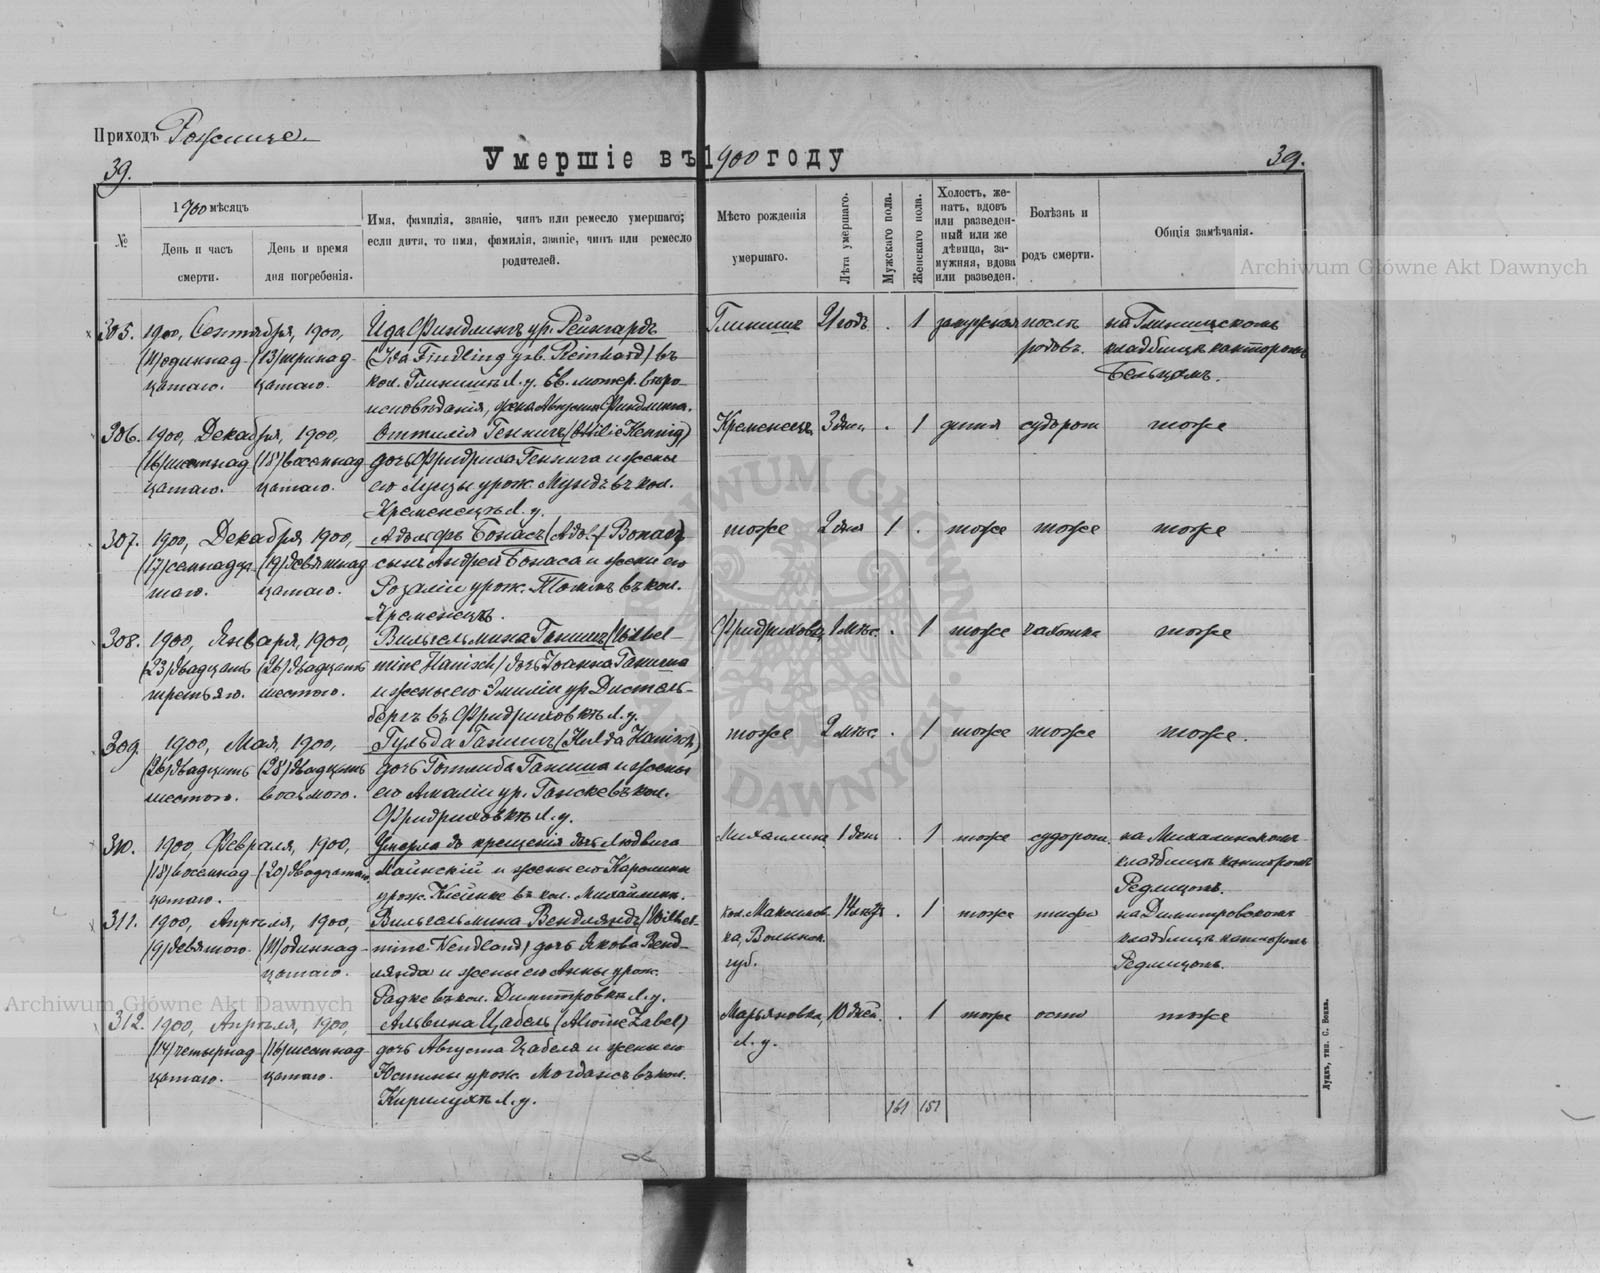 Приходъ Рожище.
39.
Умершіе въ 1900 году
39.
№
1900 мѣсяцъ
День и часъ смерти.
День и время дня погребенія.
Имя, фамилія, званіе, чинъ или ремесло умершаго;
если дитя, то имя, фамилія, званіе, чинъ или ремесло
родителей.
Мѣсто рожденія
умершаго.
Лѣта умершаго.
Мужскаго пола.
Женскаго пола.
Холостъ, же-
натъ, вдовъ
или разведен-
ный или же
дѣвица, за-
мужняя, вдова
или разведен.
Болѣзнь и
родъ смерти.
Общія замѣчанія.
305. 1900, Сентября, 1900, Ида Финдлингъ ур. Рейнгардъ Глинище 21 годъ . 1 замужняя послѣ на Глинищскомъ
(11) одиннад- (13) тринад- (Ida Findling geb. Reinhard) въ родовъ. кладбищѣ канторомъ
цатаго. цатаго. кол. Глинищѣ Л. у. Ев. лютер. вѣро- Бельцомъ.
исповѣданія, жена Августа Финдлинга.
306. 1900, Декабря, 1900, Оттилія Геннигъ (Ottilie Hennig) Кременецъ 3 дня . 1 дитя судорог. тоже
(16) шестнад- (18) восемнад- дочь Фридриха Геннига и жены
цатаго. цатаго. его Луизы урож. Мундъ въ кол.
Кременецъ Л. у.
307. 1900, Декабря 1900, Адольфъ Бонасъ (Adolf Bonas) тоже 2 дня 1 . тоже тоже тоже
(17) семнадца- (19) девятнад- сынъ Андрея Бонаса и жены его
таго. цатаго. Розаліи урож. въ кол.
Кременецъ.
308. 1900, Января, 1900, Вильгельмина Ганишъ (Wilhel- Фридриховка 1 мѣс. . 1 тоже чахотка тоже
(23) двадцать (26) двадцать mine Hanisch) дочь Іоанна Ганиша
третьяго. шестого. и жены его Эмиліи ур. Дистель-
бергъ въ Фридриховкѣ Л. у.
309. 1900, Мая, 1900, Гульда Ганишъ (Hulda Hanisch) тоже 2 мѣс. . 1 тоже тоже тоже.
(26) двадцать (28) двадцать дочь Готлиба Ганиша и жены
шестого. восьмого. его Амаліи ур. Ганске въ кол.
Фридриховкѣ Л. у.
310. 1900, Февраля, 1900, Умерла до крещенія дочь Людвига Михалина 1 день . 1 тоже судорог. на Михалинскомъ
(18) восемнад- (20) двадцатаго. и жены его Каролины кладбищѣ канторомъ
цатаго. урож. въ кол. Михайлинъ. Редлицомъ.
311. 1900, Апрѣля, 1900, Вильгельмина Вендляндъ (Wilhel- кол. . 1 тоже тифъ на Димитровскомъ
(9) девятого. (11) одиннад- mine Wendland) дочь Якова Венд- Волынск. кладбищѣ канторомъ
цатаго. лянда и жены его Анны урож. губ. Редлицомъ.
Радке въ кол. Димитровкѣ Л. у.
312. 1900, Апрѣля, 1900, Альвина Цабель (Alwine Zabel) Марьяновка, 10 дней. . 1 тоже оспа тоже
(14) четырнад- (16) шестнад- дочь Августа Цабеля и жены его Л. у.
цатаго. цатаго. Юстины урож. въ кол.
Л. у.
161 151
Луцкъ, тип. С. Бокка.
Archiwum Główne Akt Dawnych
Archiwum Główne Akt Dawnych
ARCHIWUM GŁÓWNE AKT DAWNYCH